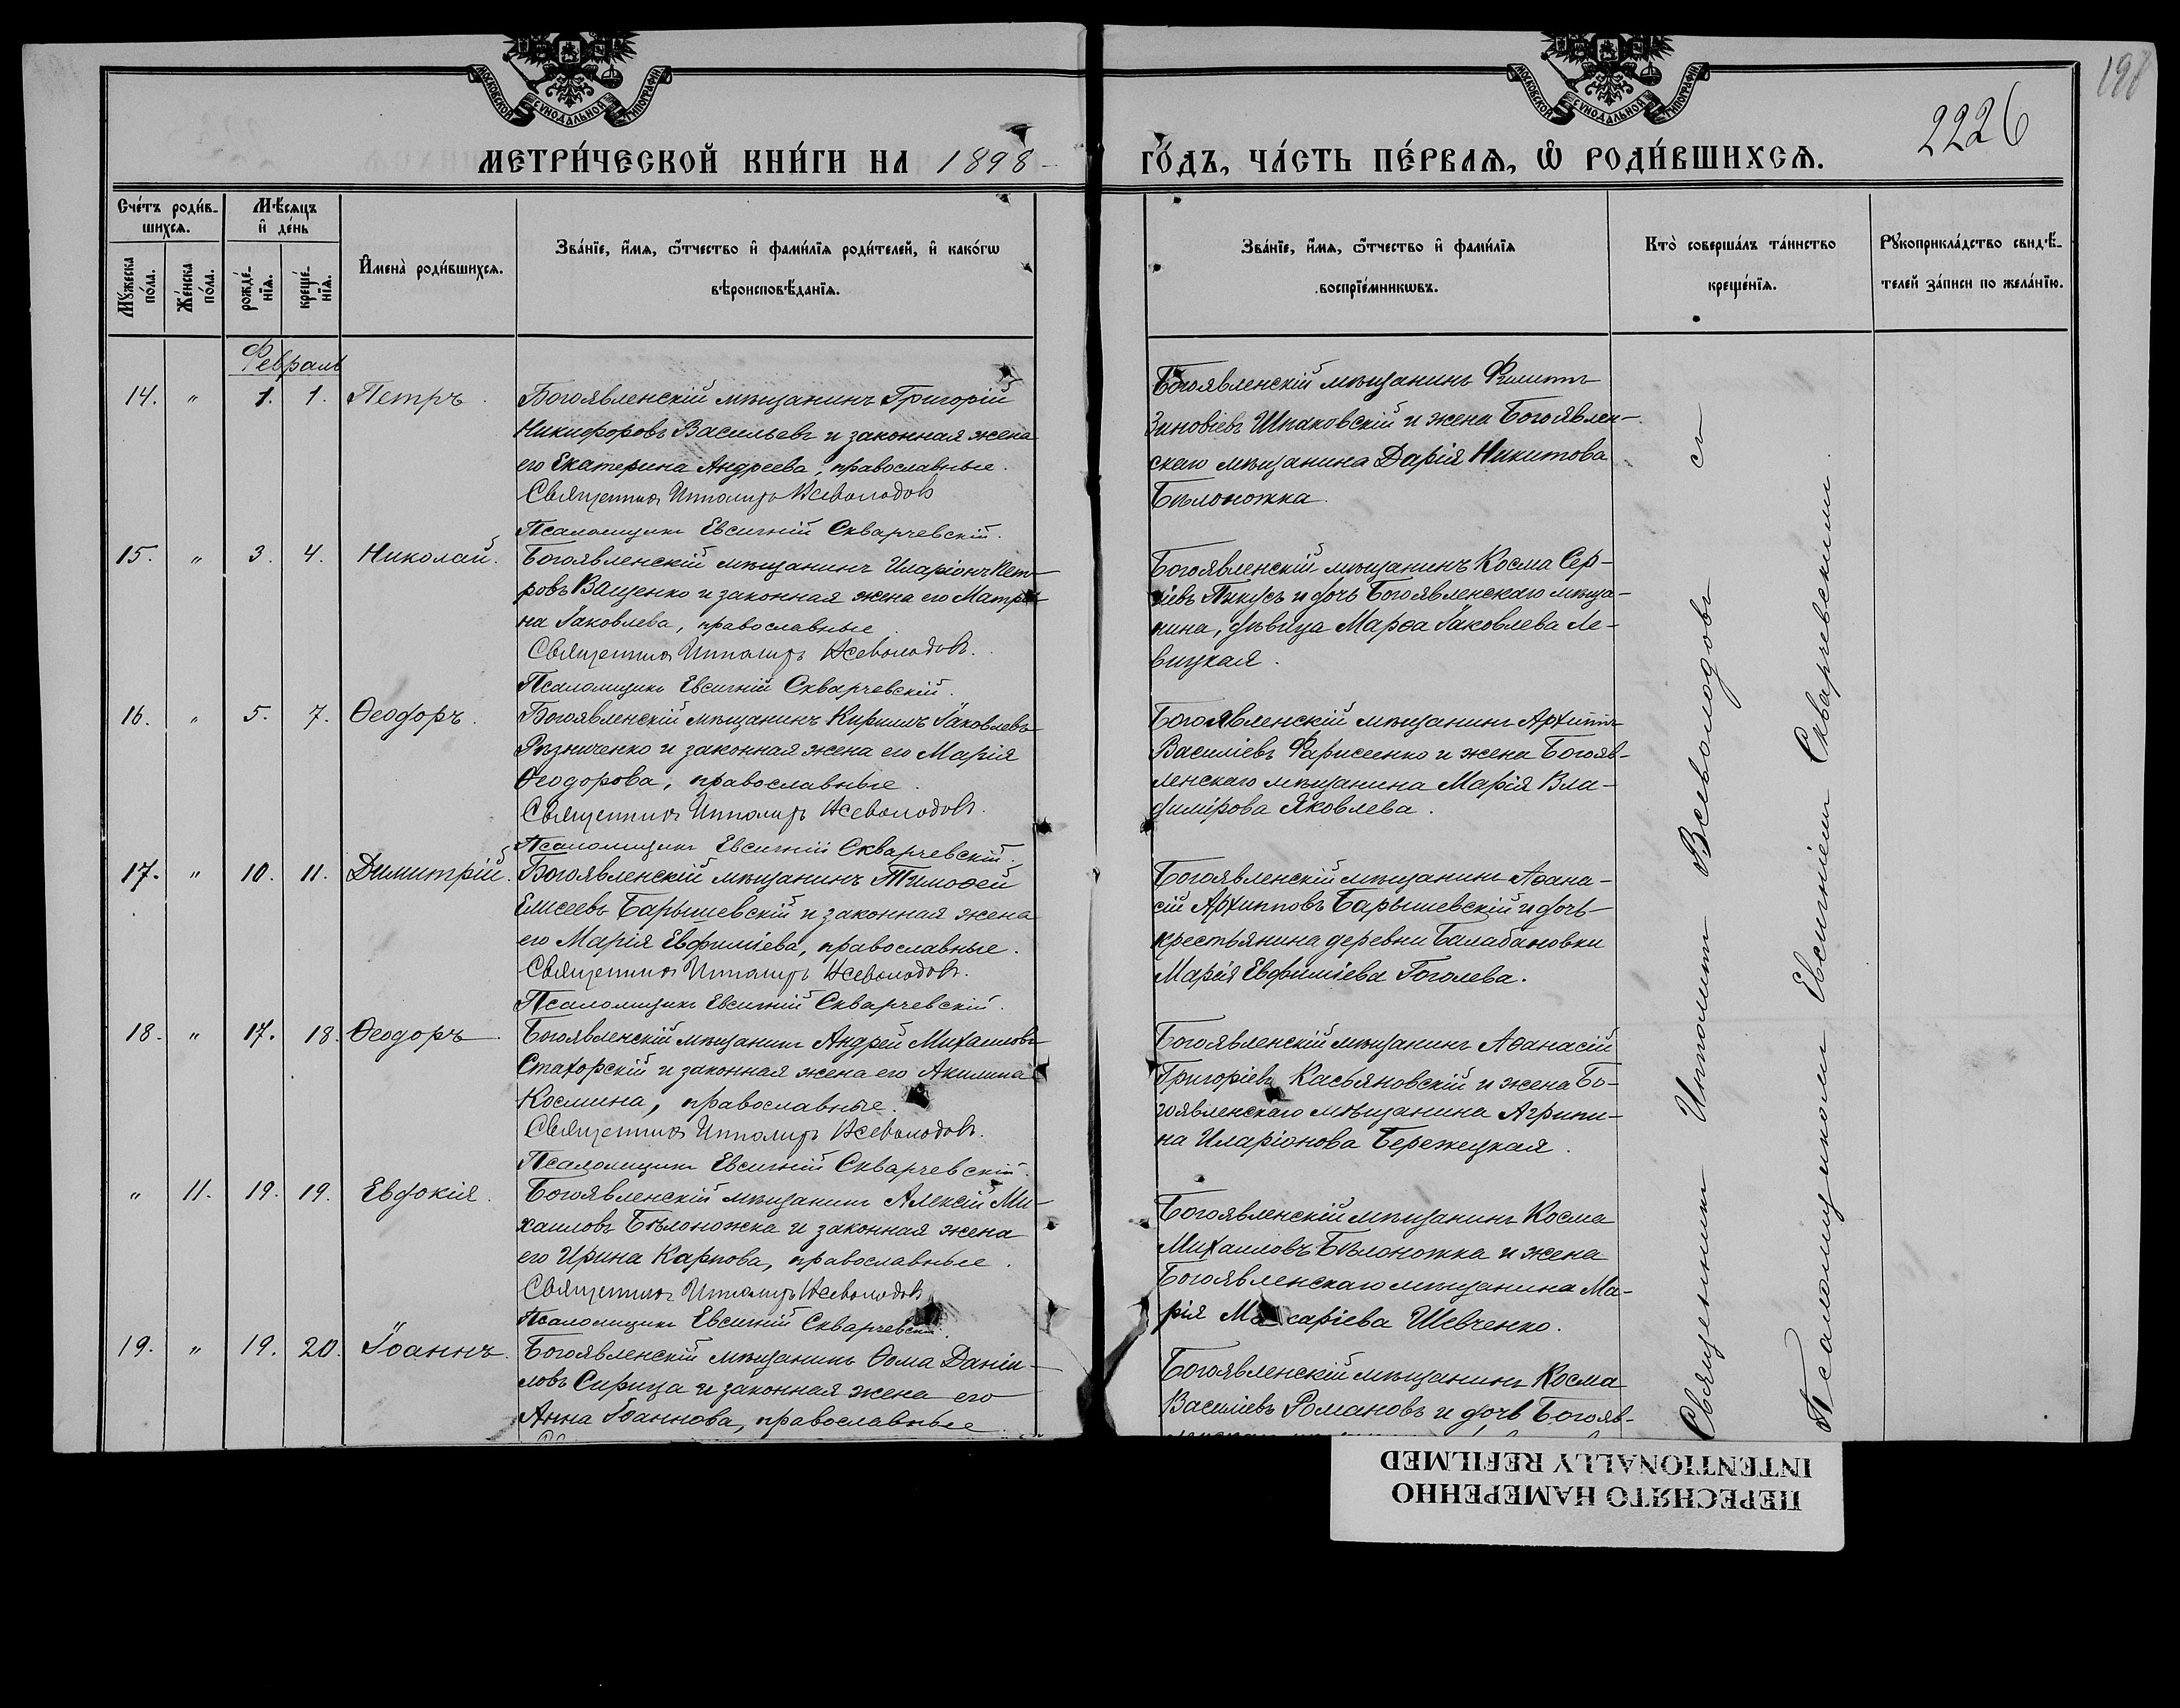 198
2226
МОСКОВСКОЙ СѴНОДАЛЬНОЙ ТИПОГРАФІИ
МОСКОВСКОЙ СѴНОДАЛЬНОЙ ТИПОГРАФІИ
МЕТРИ́ЧЕСКОЙ КНИ́ГИ НА 1898 ГО́ДЪ, ЧА́СТЬ ПЕ́РВАѦ, Ѡ РОДИ́ВШИХСѦ.
Сче́тъ роди́в-
шихсѧ.
Мꙋ́жеска по́ла.
Же́нска по́ла.
Мѣ́сѧцъ
и҆ де́нь
рожде́-
нїѧ.
креще́-
нїѧ.
И҆мена̀ роди́вшихсѧ.
Зва́нїе, и҆́мѧ, ѻ҆́тчество и҆ фами́лїѧ роди́телей, и҆ како́гѡ
вѣроисповѣ́данїѧ.
Зва́нїе, и҆́мѧ, ѻ҆́тчество и҆ фами́лїѧ
воспрїе́мникѡвъ.
Кто̀ соверша́лъ та́инство
креще́нїѧ.
Рꙋкоприкла́дство свидѣ́-
телей за́писи по жела́нїю.
Февраль
14. " 1. 1. Петръ.
Богоявленскій мѣщанинъ Григорій
Никифоровъ Васильевъ и законная жена
его Екатерина Андреева, православные.
Священникъ Ипполитъ Всеволодовъ
Псаломщикъ Евсигній Скварчевскій.
Богоявленскій мѣщанинъ Филиппъ
Зиновіевъ Шпаковскій и жена Богоявлен-
скаго мѣщанина Дарія Никитова
Бѣлоножка.
15. " 3. 4. Николай.
Богоявленскій мѣщанинъ Иларіонъ Пет-
ровъ Ващенко и законная жена его Матро-
на Іаковлева, православные.
Священникъ Ипполитъ Всеволодовъ.
Псаломщикъ Евсигній Скварчевскій.
Богоявленскій мѣщанинъ Косма Сер-
гіевъ Пикусъ и дочь Богоявленскаго мѣща-
нина, дѣвица Марѳа Іаковлева Ле-
вицкая.
16. " 5. 7. Ѳеодоръ.
Богоявленскій мѣщанинъ Кириллъ Іаковлевъ
Рѣзниченко и законная жена его Марія
Ѳеодорова, православные.
Священникъ Ипполитъ Всеволодовъ.
Псаломщикъ Евсигній Скварчевскій.
Богоявленскій мѣщанинъ Архиппъ
Василіевъ Фарисеенко и жена Богояв-
ленскаго мѣщанина Марія Вла-
димірова Яковлева.
17. " 10. 11. Димитрій.
Богоявленскій мѣщанинъ Тимоѳей
Елисеевъ Барышевскій и законная жена
его Марія Евфиміева, православные.
Священникъ Ипполитъ Всеволодовъ.
Псаломщикъ Евсигній Скварчевскій.
Богоявленскій мѣщанинъ Аѳана-
сій Архипповъ Барышевскій и дочь
крестьянина деревни Балабановки
Марія Евфиміева Гоголева.
18. " 17. 18. Ѳеодоръ.
Богоявленскій мѣщанинъ Андрей Михаиловъ
Стахорскій и законная жена его Акилина
Космина, православные.
Священникъ Ипполитъ Всеволодовъ.
Псаломщикъ Евсигній Скварчевскій.
Богоявленскій мѣщанинъ Аѳанасій
Григоріевъ Касьяновскій и жена Бо-
гоявленскаго мѣщанина Агрипи-
на Иларіонова Бережецкая.
" 11. 19. 19. Евдокія.
Богоявленскій мѣщанинъ Алексій Ми-
хаиловъ Бѣлоножка и законная жена
его Ирина Карпова, православные.
Священникъ Ипполитъ Всеволодовъ
Псаломщикъ Евсигній Скварчевскій.
Богоявленскій мѣщанинъ Косма
Михаиловъ Бѣлоножка и жена
Богоявленскаго мѣщанина Ма-
рія Макаріева Шевченко.
19. " 19. 20. Іоаннъ.
Богоявленскій мѣщанинъ Ѳома Даніи-
ловъ Сирица и законная жена его
Анна Іоаннова, православные.
Богоявленскій мѣщанинъ Косма
Василіевъ Романовъ и дочь Богояв-
Священникъ Ипполитъ Всеволодовъ съ
Псаломщикомъ Евсигніемъ Скварчевскимъ.
ПЕРЕСНЯТО НАМЕРЕННО
INTENTIONALLY REFILMED